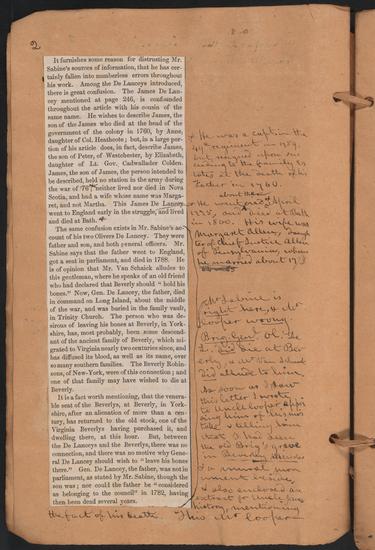 2
It furnishes some reason for distrusting Mr.
Sabine's sources of information, that he has cer-
tainly fallen into numberless errors throughout
his work. Among the De Lanceys introduced,
there is great confusion. The James De Lan-
cey mentioned at page 246, is confounded
throughout the article with his cousin of the
same name. He wishes to describe James, the
son of the James who died at the head of the
government of the colony in 1760, by Anne,
daughter of Col. Heathcote; but, in a large por-
tion of his article does, in fact, describe James,
the son of Peter, of Westchester, by Elizabeth,
daughter of Lt. Gov. Cadwallader Colden.
James, the son of James, the person intended to
be described, held no station in the army during
the war of '76 neither lived nor died in Nova
Scotia, and had a wife whose name was Marga-
ret, and not Martha. This James De Lancey
went to England early in the struggle, and lived
and died at Bath.
The same confusion exists in Mr. Sabine's ac-
count of his two Olivers De Lancey. They were
father and son, and both general officers. Mr.
Sabine says that the father went to England,
got a seat in parliament, and died in 1788. He
is of opinion that Mr. Van Schaick alludes to
this gentleman, where he speaks of an old friend
who had declared that Beverly should "hold his
bones." Now, Gen. De Lancey, the father, died
in command on Long Island, about the middle
of the war, and was buried in the family vault,
in Trinity Church. The person who was de-
sirous of leaving his bones at Beverly, in York-
shire, has, most probably, been some descend-
ant of the ancient family of Beverly, which mi-
grated to Virginia nearly two centuries since, and
has diffused its blood, as well as its name, over
so many southern families. The Beverly Robin-
sons, of New-York, were of this connection; and
one of that family may have wished to die at
Beverly.
It is a fact worth mentioning, that the vener-
able seat of the Beverlys, at Beverly, in York-
shire, after an alienation of more than a cen-
tury, has returned to the old stock, one of the
Virginia Beverlys having purchased it, and
dwelling there, at this hour. But, between
the De Lanceys and the Beverlys, there was no
connection, and there was no motive why Gene-
ral De Lancey should wish to "leave his bones
there." Gen. De Lancey, the father, was not in
parliament, as stated by Mr. Sabine, though the
son was; nor could the father be "considered
as belonging to the council" in 1782, having
then been dead several years.
He was a captain in the
49th regiment in 1759.
but resigned upon suc-
ceeding to the family es-
tates at the death of his
Father in 1760.
He went April
1775, and died at Bath
in 1800. His wife was
Margaret Allen, daugh-
ter of Chief Justice Allen
of Pennsylvania, whom
he married about 17
Mr Sabine is
right here, & Mr
Cooper wrong
Brig. Gen. Ol. De
L. did die at Bev-
erly & Mr Van Schaick
did allude to him,
As soon as I saw
this letter I wrote
to Uncle Cooper appris-
ing him of his mis-
take & telling him
that I had seen
the old Brig's grave
in Beverley Minster
& also enclosed an
extract for Uncle from
history, mentioning
the fact of his death. This Mr Cooper